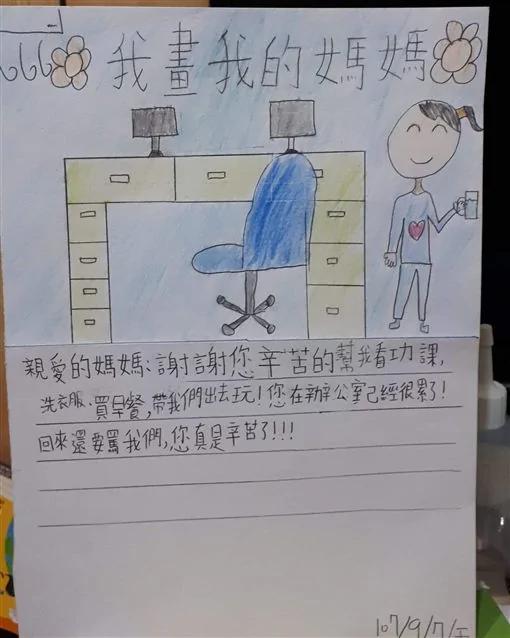 666
我畫我的媽媽
親愛的媽媽:謝謝您辛苦的幫我看功課,
洗衣服、買早餐,帶我們出去玩!您在辦公室已經很累了!
回來還要罵我們,您真是辛苦了!!!
107/9/7/五